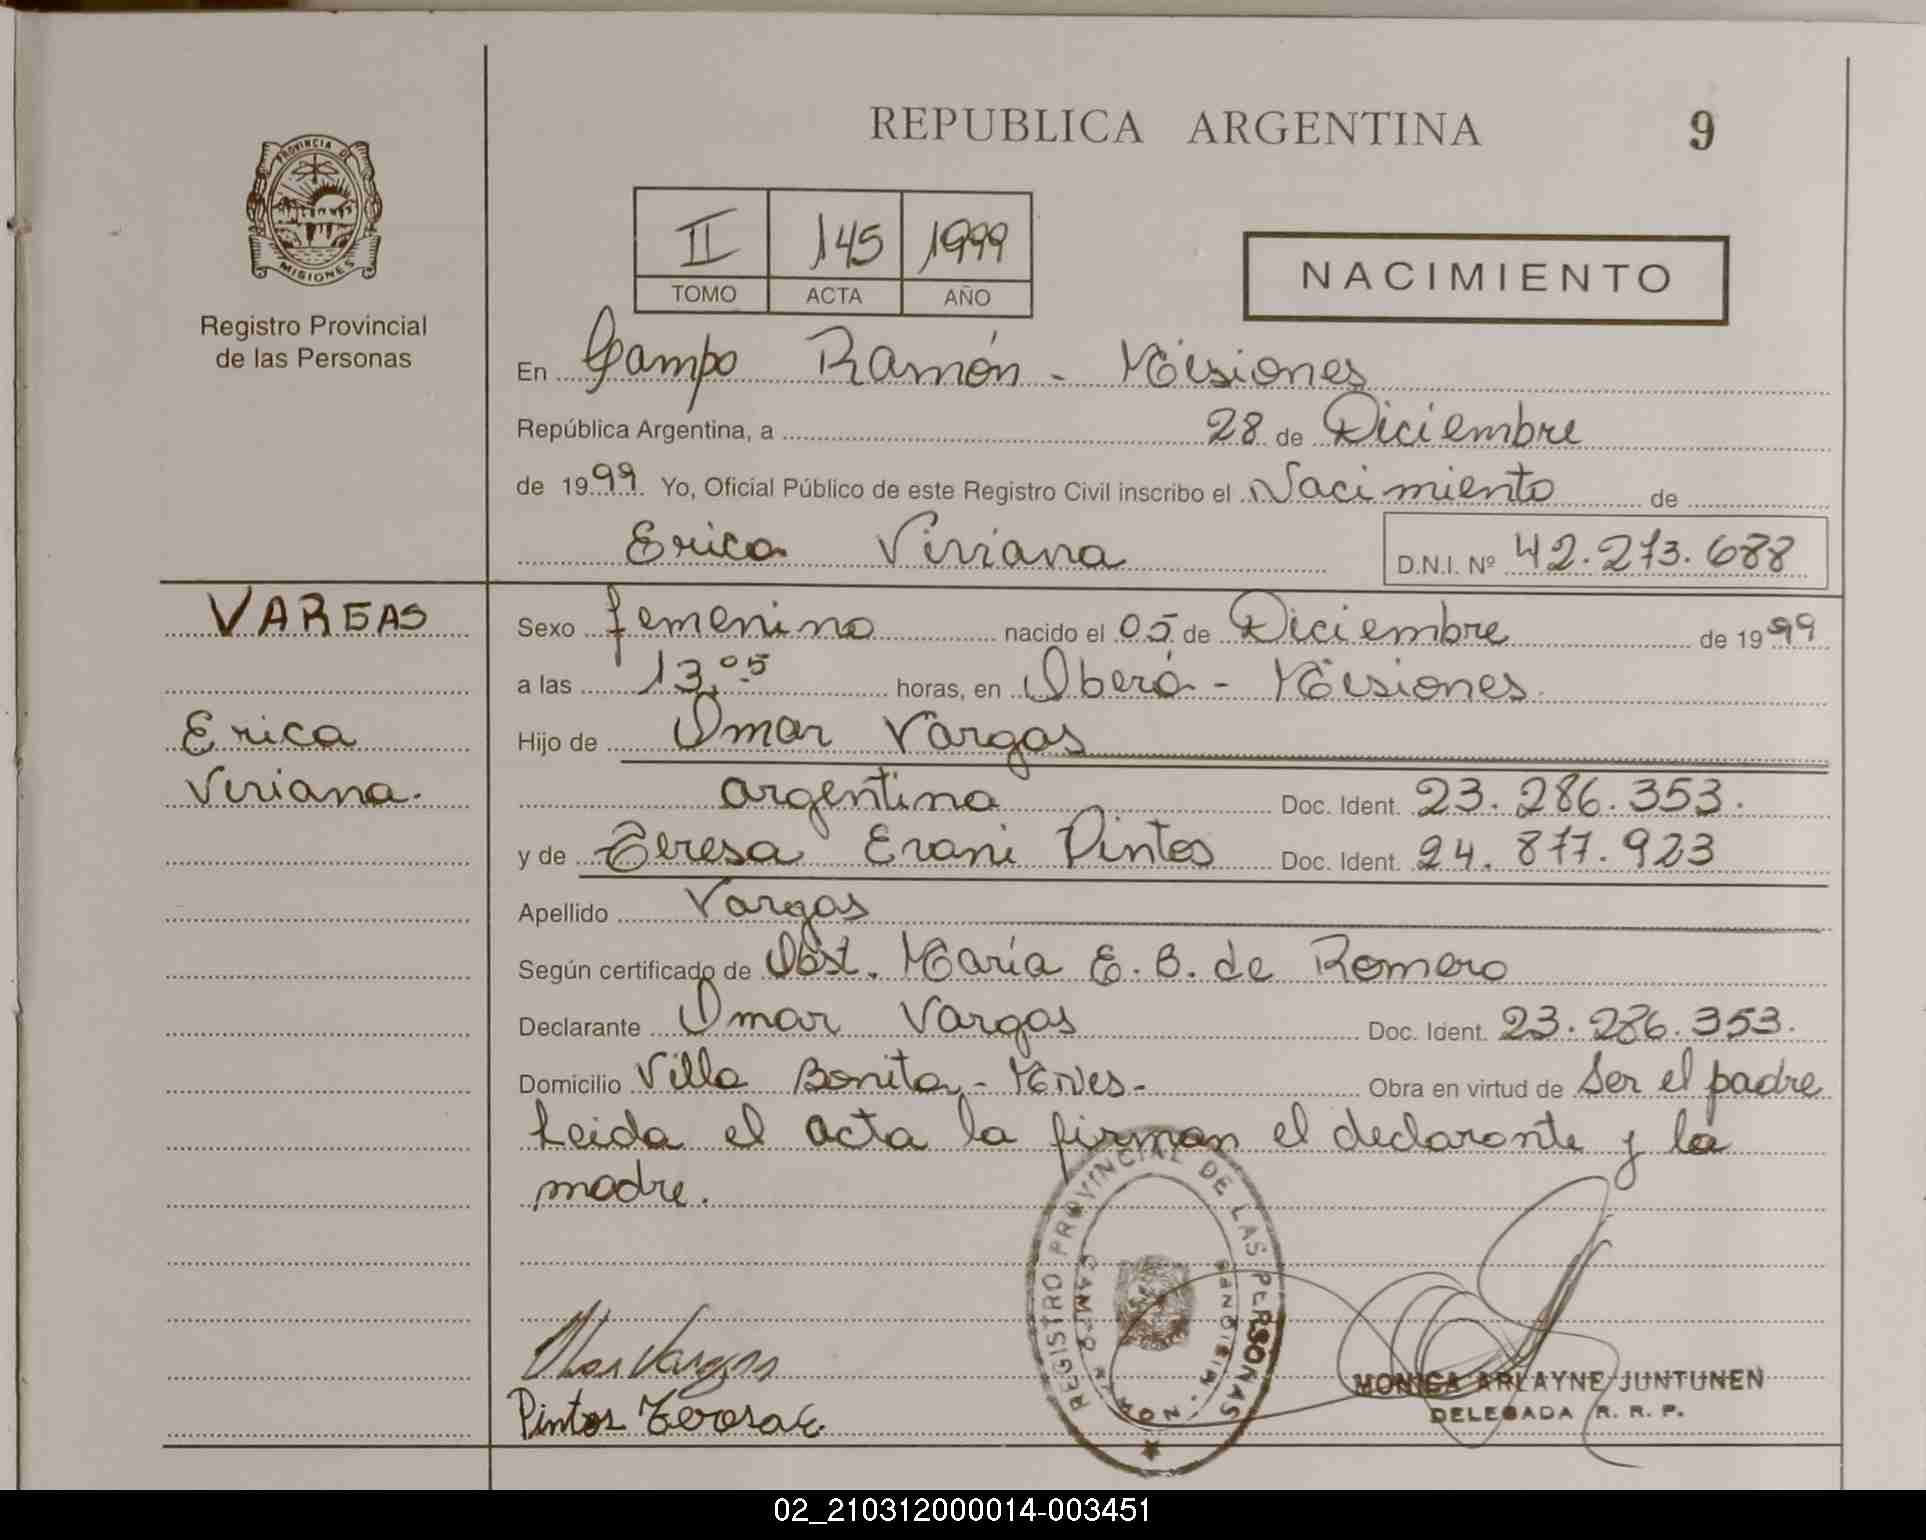 REPUBLICA ARGENTINA
9
PROVINCIA DE
MISIONES
Registro Provincial
de las Personas
II 145 1999
TOMO ACTA AÑO
NACIMIENTO
En Campo Ramón - Misiones
República Argentina, a 28 de Diciembre
de 1999 Yo, Oficial Público de este Registro Civil inscribo el Nacimiento de
Erica Viviana D.N.I. Nº 42.273.688
VARGAS
Erica
Viviana.
Sexo femenino nacido el 05 de Diciembre de 1999
a las 13.05 horas, en Oberá - Misiones
Hijo de Omar Vargas
argentino Doc. Ident. 23.286.353.
y de Teresa Evani Pintos Doc. Ident. 24.877.923
Apellido Vargas
Según certificado de Obst. María E. B. de Romero
Declarante Omar Vargas Doc. Ident. 23.286.353.
Domicilio Villa Bonita - Mnes. Obra en virtud de Ser el padre
Leida el acta la firman el declarante y la
madre.
REGISTRO PROVINCIAL DE LAS PERSONAS
CAMPO RAMON - MISIONES
Vargas
Pintos Teresa E.
MONICA ARLAYNE JUNTUNEN
DELEGADA R. R. P.
02_210312000014-003451